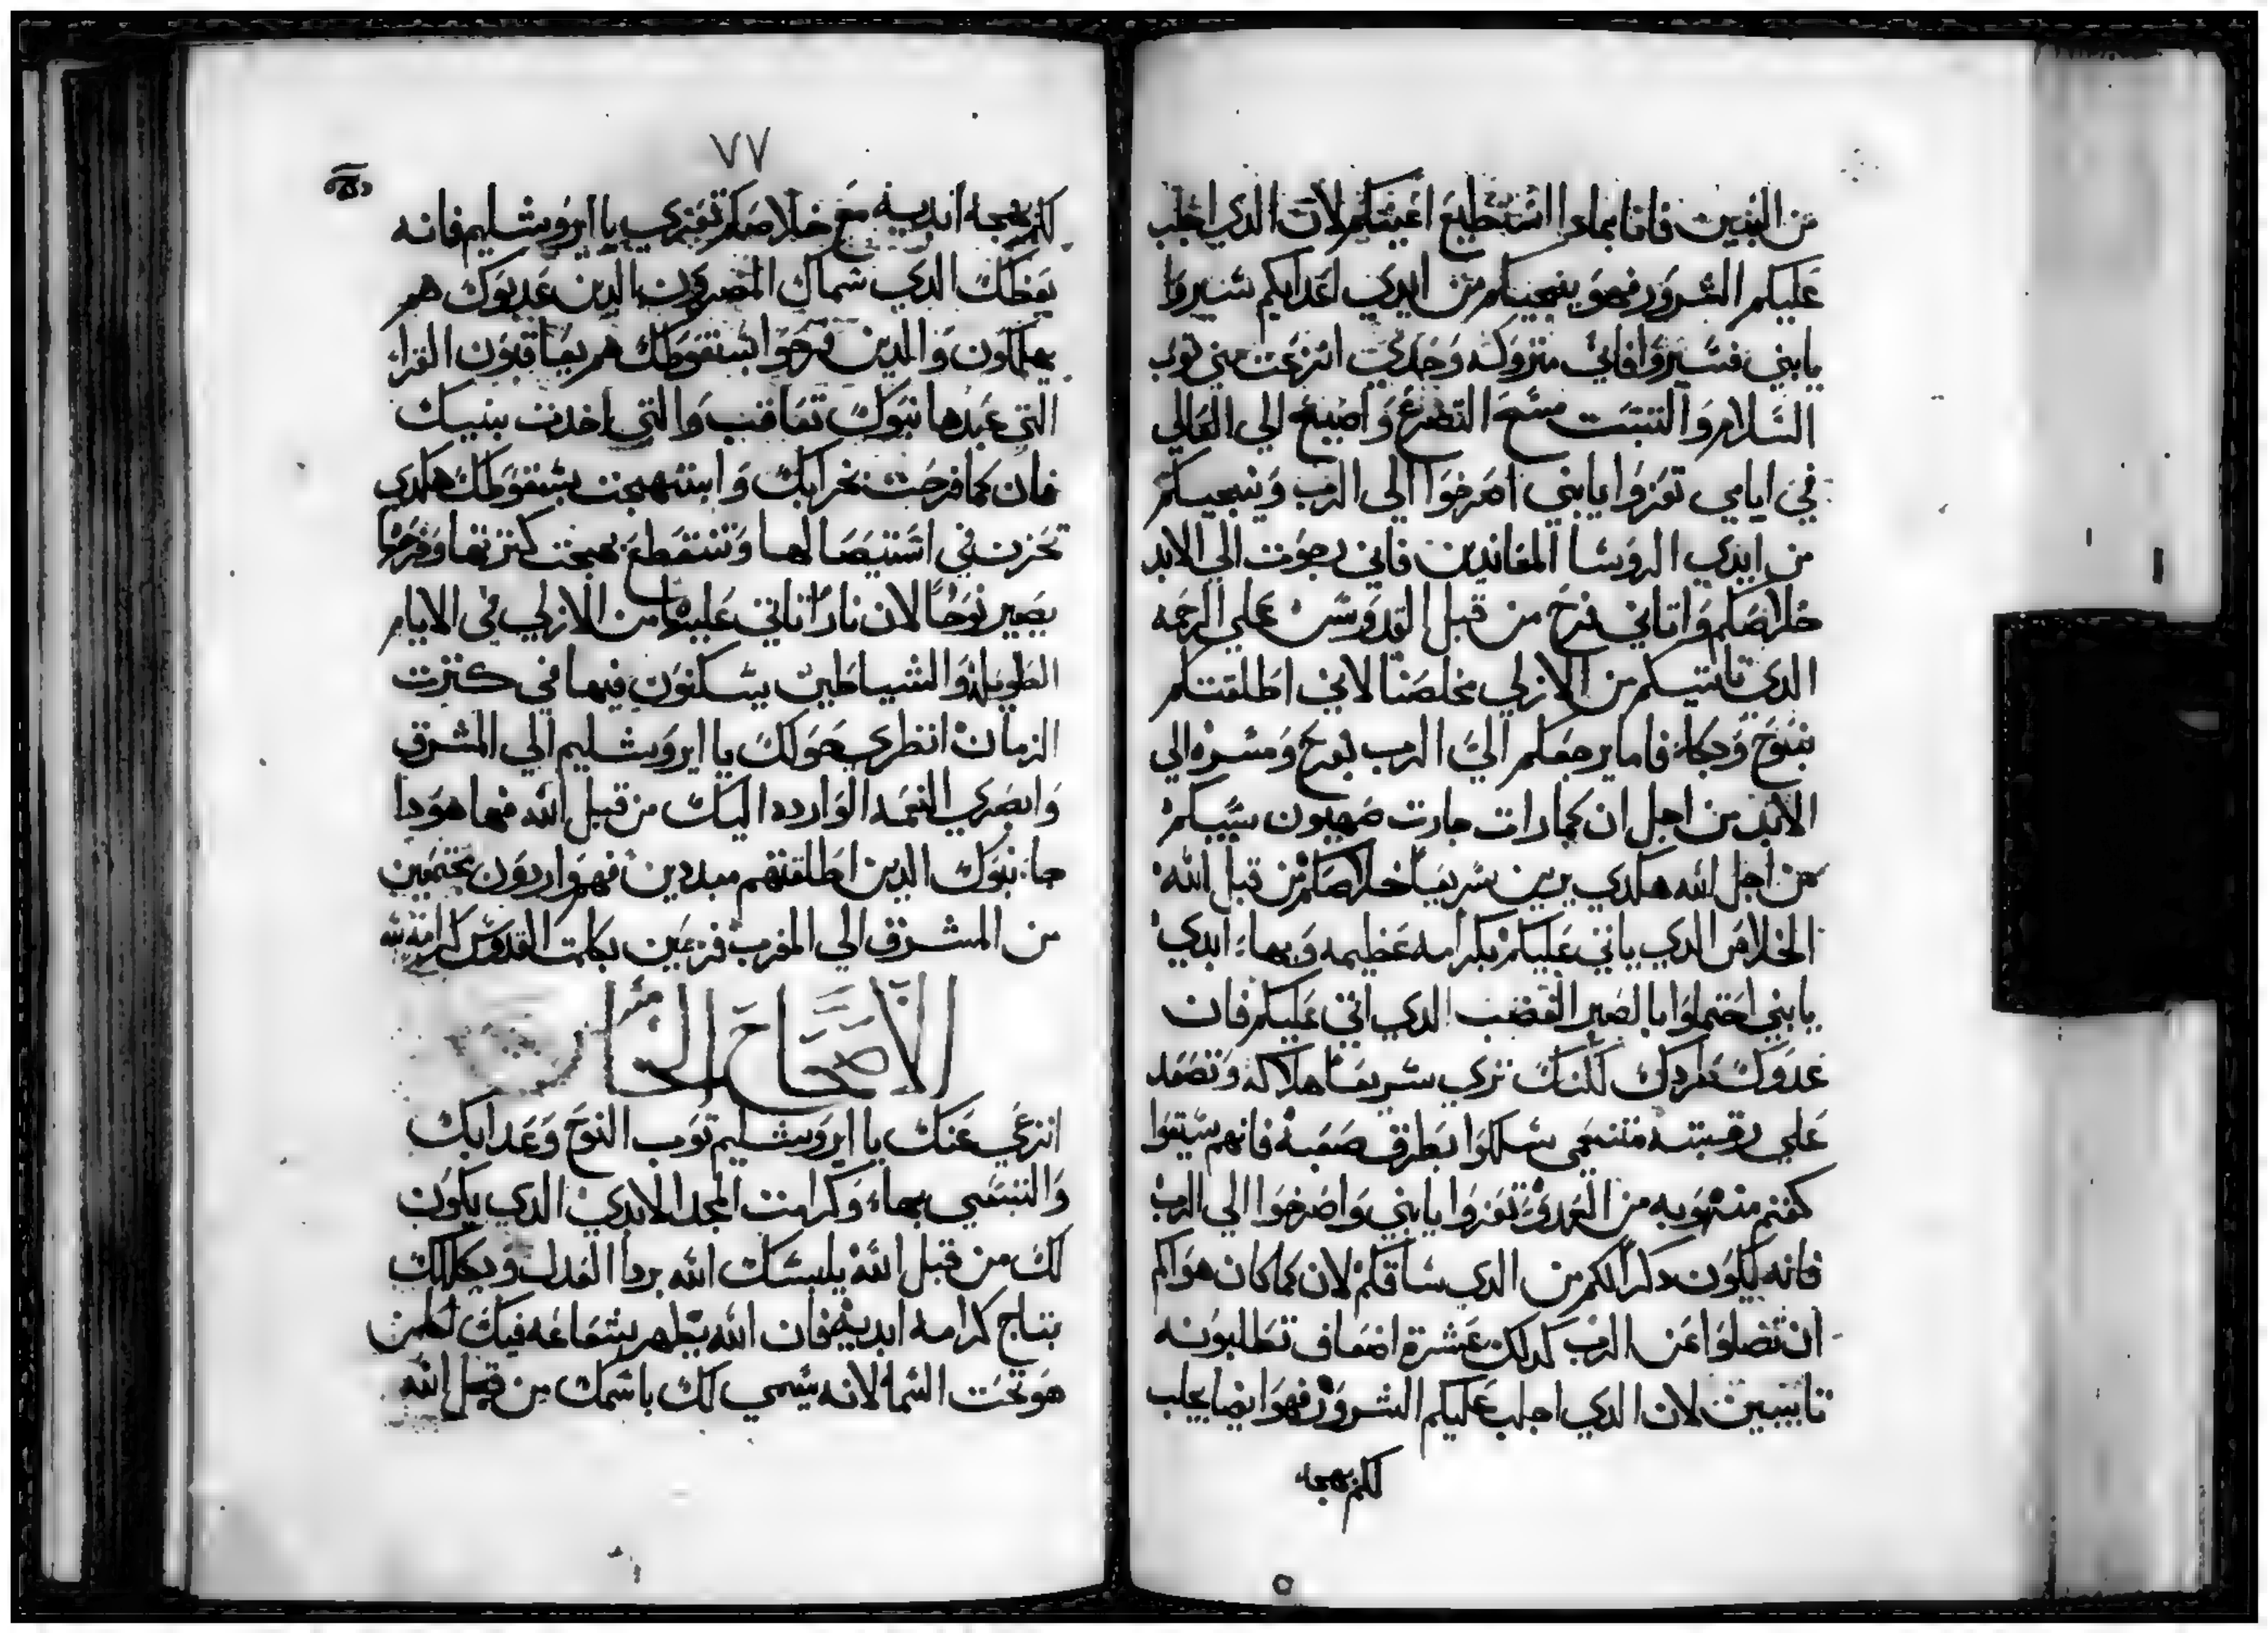 من البنين فانا بماذا استطيع اعينكم لان الدي اجلب
عليكم الشرور فهو ينجيكم من ايدي اعدايكم سيروا
يا بني فسيروا فاني متروكه وحدي انتزعت عني توب
السلام والتبست مسح التضرع واصيح الي العالي
في ايامي تعزوا يا بني اصرخوا الي الرب وينجيكم
من ايدي الروسا المعاندين فاني رجوت الي الابد
خلاصكم واتاني فرح من قبل القدوس علي الرحمه
الدي تاتيكم من الازلي مخلصنا لاني اطلقتكم
بنوح وبكاء فاما يرجعكم الي الرب بفرح ومسره الي
الابد من اجل ان كما رات جارت صهيون سبيكم
من اجل الله هكدي يرين سريعا خلاصكم من قبل الله
الخلاص الدي ياتي عليكم بكرامه عظيمه وبهاء ابدي
يا بني احتملوا بالصبر الغضب الدي اتي عليكم فان
عدوك طردك لكنك تري سريعا هلاكه وتصعد
علي رقبته متنعمي سلكوا بطرق صعبه فانهم سيقوا
كغنم منهوبه من العدو تعزوا يا بني واصرخوا الي الرب
فانه يكون دكرا لكم من الدي ساقكم لان كما كان هواكم
ان تضلوا عن الرب كدلك عشرة اضعاف تطلبونه
تايبين لان الدي اجلب عليكم الشرور فهو ايضا يجلب
لكم بهجه
٧٧
لكم بهجه ابديه مع خلاصكم تعزي يا ايروشليم فانه
يعظك الدي سماك المضرون الدين عدبوك هم
يهلكون والدين فرحوا بسقوطك هم يعاقبون القراء
التي عبدها بنوك تعاقب والتي اخدت بنيك
فان كما فرحت بخرابك وابتهجت بسقوطك هكدي
تحزن في استيصالها وتنقطع بهجت كثرتها وفرحها
يصير نوحا لان نارا تاتي عليها من الازلي في الايام
الطويله والشياطين يسكنون فيها في كثرت
الزمان انظري حولك يا ايروشليم الي المشرق
وابصري النعمه الوارده اليك من قبل الله فها هودا
جاء بنوك الدين اطلقتهم مبددين فهم واردون مجتمعين
من المشرق الي المغرب فرحين بكلمت القدوس لكرامة الله
الاصحاح الخامس
انزعي عنك يا ايروشليم توب النوح وعدابك
والتبسي بهاء وكرامت المجد الابدي الدي يكون
لك من قبل الله يلبسك الله بردا العدل ويكللك
بتاج كرامه ابديه فان الله يظهر شعاعه فيك لكل من
هو تحت السما لانه يسمي لك باسمك من قبل الله